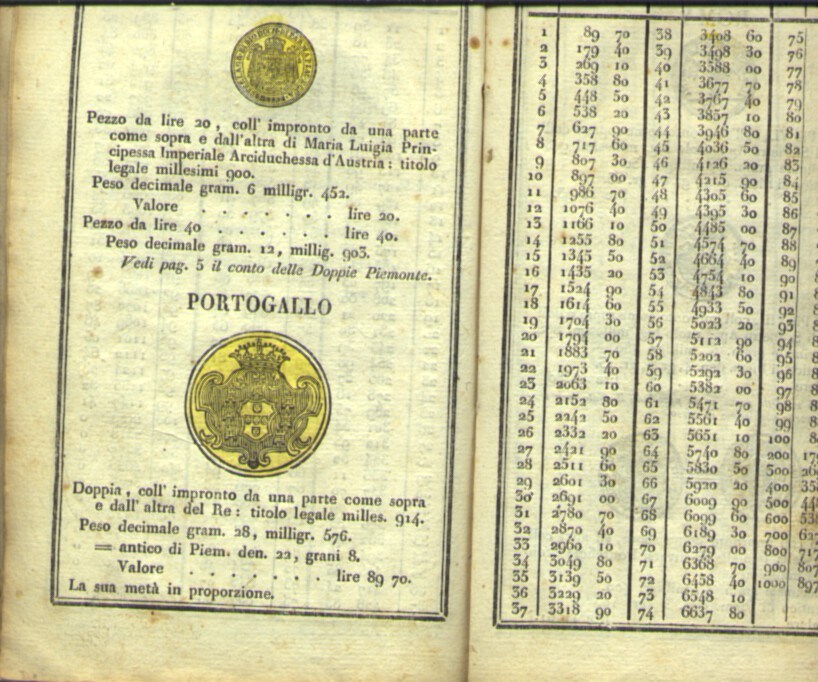 Pezzo da lire 20, coll' impronto da una parte
come sopra e dall'altra di Maria Luigia Prin-
cipessa Imperiale Arciduchessa d'Austria: titolo
legale millesimi 900.
Peso decimale gram. 6 milligr. 452.
Valore . . . . . . . lire 20.
Pezzo da lire 40 . . . . . . lire 40.
Peso decimale gram. 12, millig. 903.
Vedi pag. 5 il conto delle Doppie Piemonte.
PORTOGALLO
Doppia, coll' impronto da una parte come sopra
e dall' altra del Re: titolo legale milles. 914.
Peso decimale gram. 28, milligr. 576.
= antico di Piem. den. 22, grani 8.
Valore . . . . . . . lire 89 70.
La sua metà in proporzione.
1 89 70 38 3408 60 75
2 179 40 39 3498 30 76
3 269 10 40 3588 00 77
4 358 80 41 3677 70 78
5 448 50 42 3767 40 79
6 538 20 43 3857 10 80
7 627 90 44 3946 80 81
8 717 60 45 4036 50 82
9 807 30 46 4126 20 83
10 897 00 47 4215 90 84
11 986 70 48 4305 60 85
12 1076 40 49 4395 30 86
13 1166 10 50 4485 00 87
14 1255 80 51 4574 70 88
15 1345 50 52 4664 40 89
16 1435 20 53 4754 10 90
17 1524 90 54 4843 80 91
18 1614 60 55 4933 50 92
19 1704 30 56 5023 20 93
20 1794 00 57 5112 90 94
21 1883 70 58 5202 60 95
22 1973 40 59 5292 30 96
23 2063 10 60 5382 00 97
24 2152 80 61 5471 70 98
25 2242 50 62 5561 40 99
26 2332 20 63 5651 10 100
27 2421 90 64 5740 80 200
28 2511 60 65 5830 50 300
29 2601 30 66 5920 20 400
30 2691 00 67 6009 90 500
31 2780 70 68 6099 60 600
32 2870 40 69 6189 30 700
33 2960 10 70 6279 00 800
34 3049 80 71 6368 70 900
35 3139 50 72 6458 40 1000
36 3229 20 73 6548 10
37 3318 90 74 6637 80